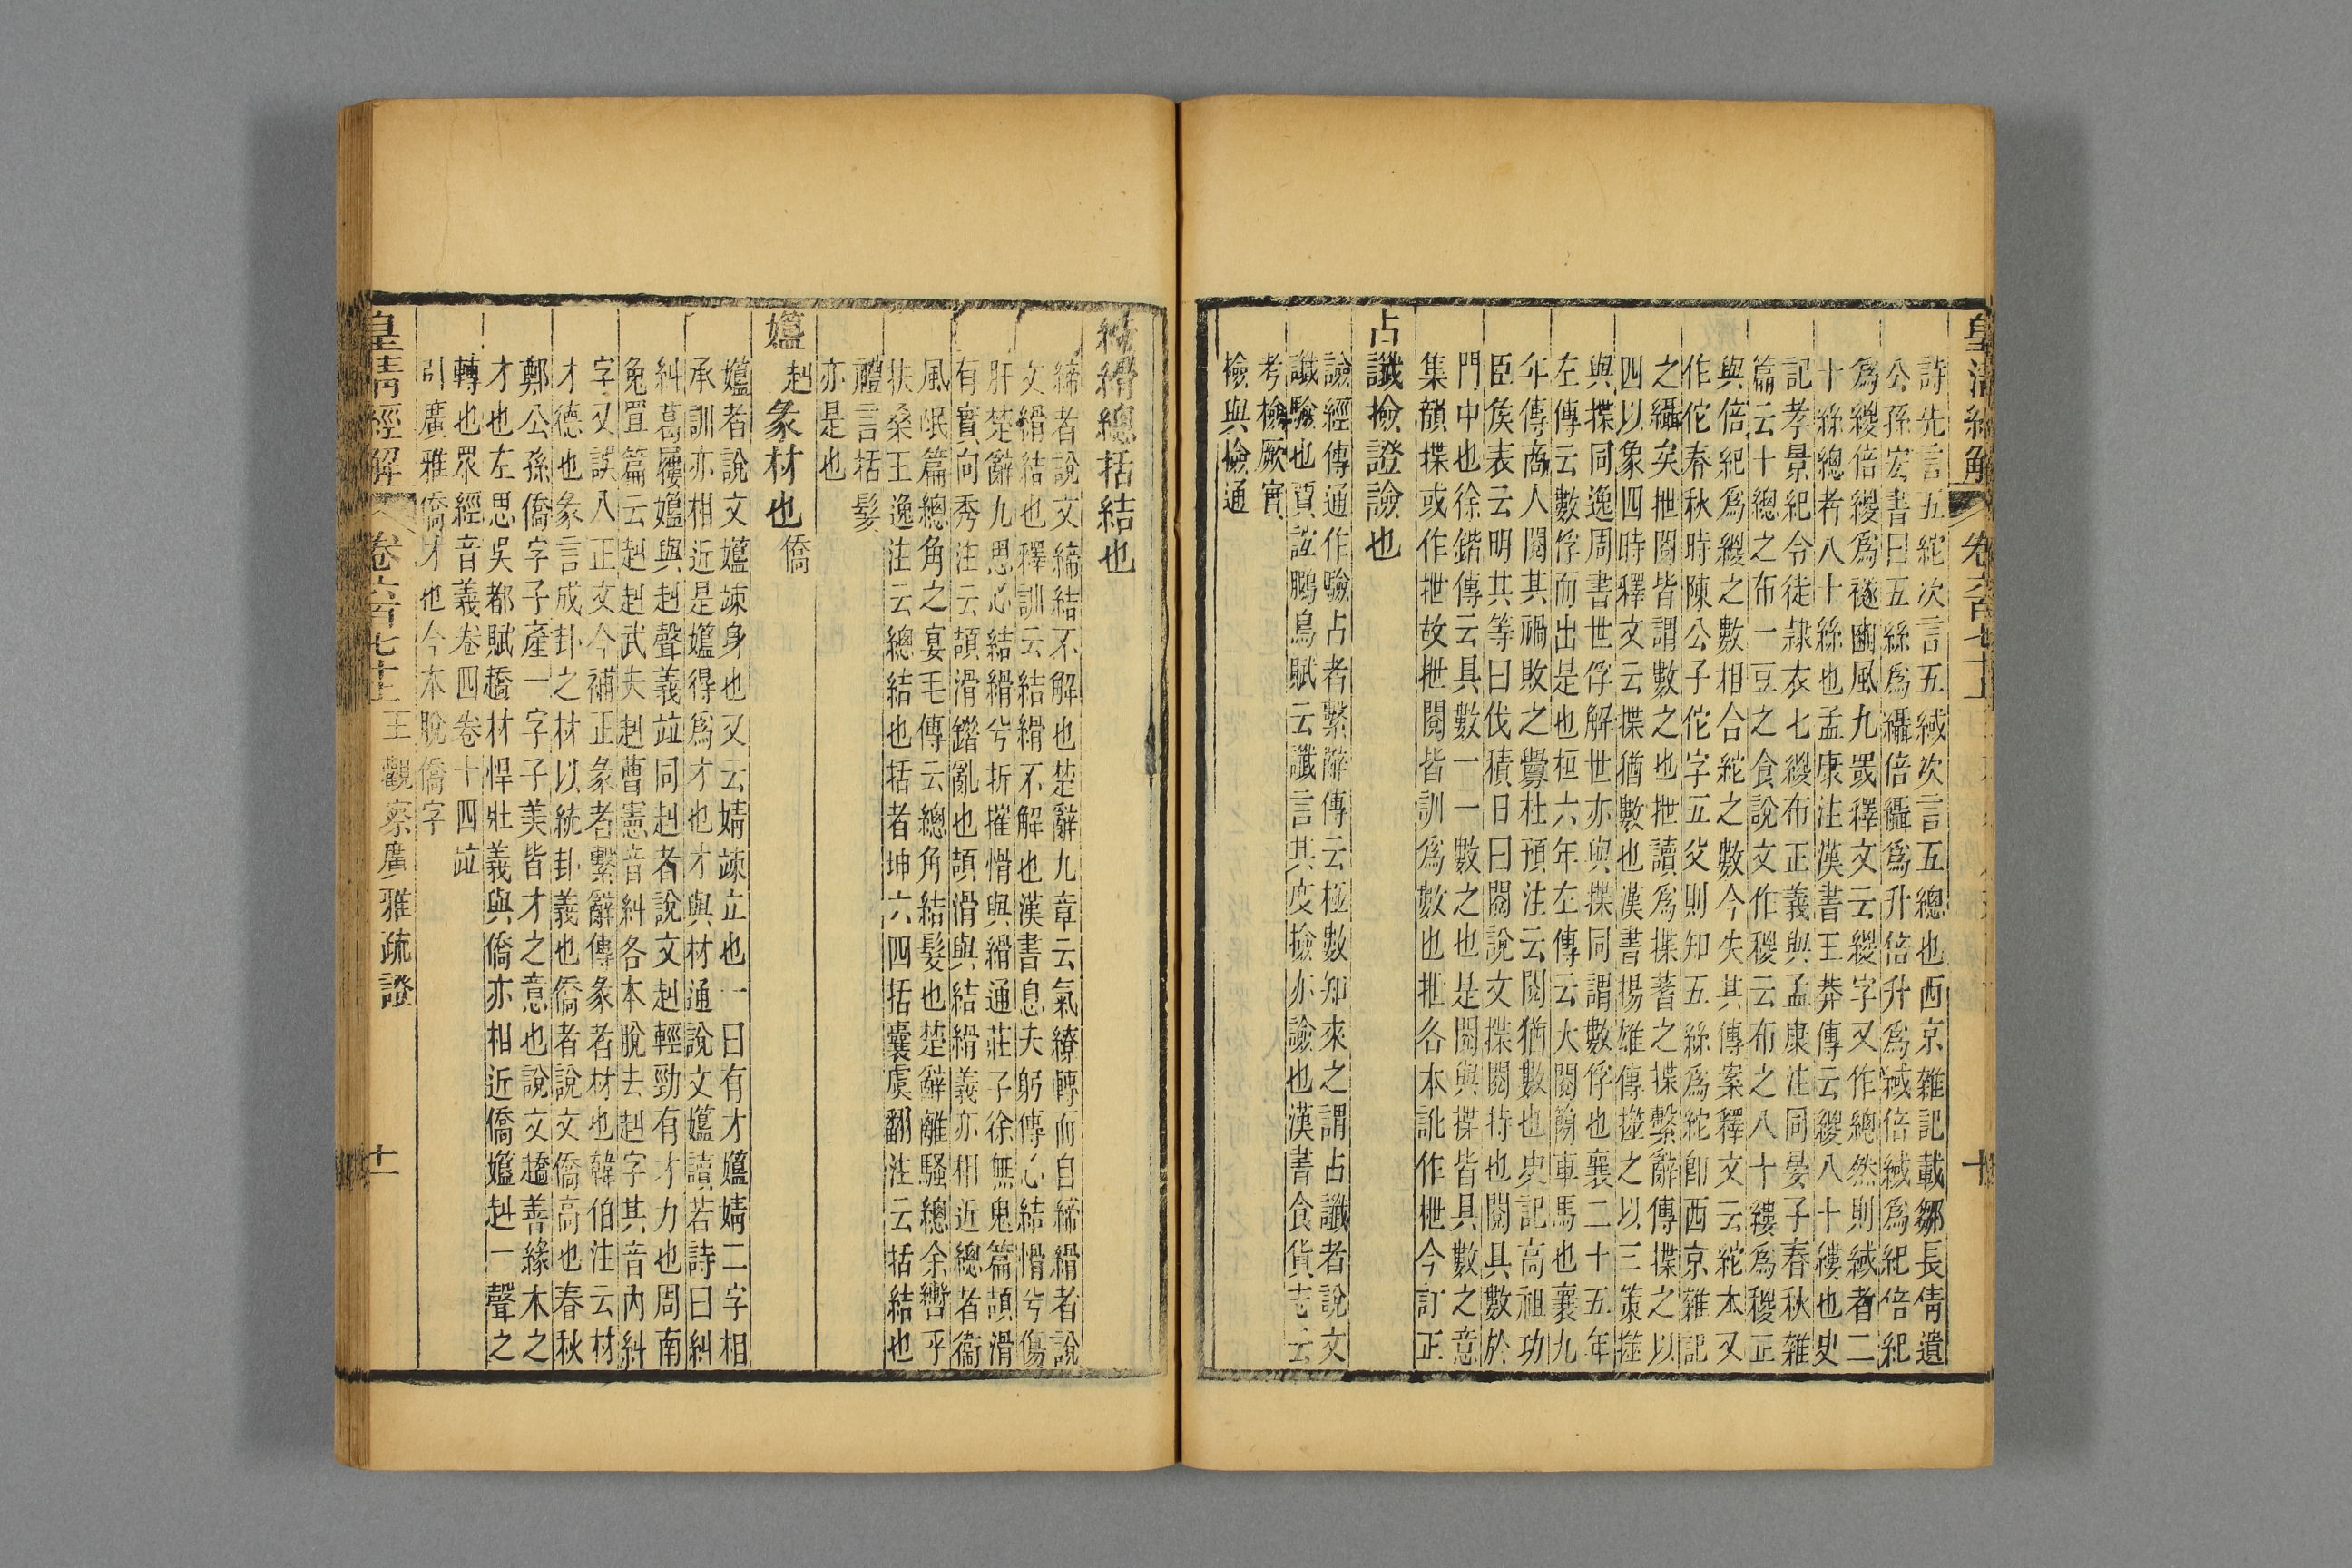 皇清經解 卷六百七十一 十
詩先言五紽次言五緎次言五總也西京雜記載鄒長倩遺
公孫宏書曰五絲爲䌰倍䌰爲升倍升爲緎倍緎爲紀倍紀
爲緵倍緵爲襚豳風九罭釋文云緵字又作總然則緎者二
十絲總者八十絲也孟康注漢書王莽傳云緵八十縷也史
記孝景紀令徒隷衣七緵布正義與孟康注同晏子春秋雜
篇云十總之布一豆之食說文作稯云布之八十縷爲稯正
與倍紀爲緵之數相合紽之數今失其傳案釋文云紽本又
作佗春秋時陳公子佗字五父則知五絲爲紽卽西京雜記
之䌰矣抴閱皆謂數之也抴讀爲揲蓍之揲繫辭傳揲之以
四以象四時釋文云揲猶數也漢書揚雄傳㩠之以三策㩠
與揲同逸周書世俘解世俘世亦與揲同謂數俘也襄二十五年
左傳云數俘而出是也桓六年左傳云大閱簡車馬也襄九
年傳商人閱其禍敗之釁杜預注云閱猶數也史記高祖功
臣矦表云明其等曰伐積日曰閱說文揲閱持也閱具數於
門中也徐鍇傳云具數一一數之也是閱與揲皆具數之意
集韻揲或作抴故抴閱皆訓爲數也抴各本訛作枻今訂正
占讖撿證譣也
譣經傳通作驗占者繫辭傳云極數知來之謂占讖者說文
讖驗也賈誼鵩鳥賦云讖言其度撿亦譣也漢書食貨志云
考檢厥實
檢與撿通
締縎總括結也
締者說文締結不解也楚辭九章云氣繚轉而自締縎者說
文縎結也釋訓云結縎不解也漢書息夫躬傳心結愲兮傷
肝楚辭九思心結縎兮折摧愲與縎通莊子徐無鬼篇頡滑
有實向秀注云頡滑錯亂也頡滑與結縎義亦相近總者衞
風氓篇總角之宴毛傳云總角結髮也楚辭離騷總余轡乎
扶桑王逸注云總結也括者坤六四括囊虞翻注云括結也
禮言括髮
亦是也
㜸赳彖材也僑
㜸者說文㜸竦身也又云婧竦立也一曰有才㜸婧二字相
承訓亦相近是㜸得爲才也才與材通說文㜸讀若詩曰糾
糾葛屨㜸與赳聲義竝同赳者說文赳輕勁有才力也周南
兔罝篇云赳赳武夫赳曹憲音糾各本脫去赳字其音內糾
字又誤入正文今補正彖者繫辭傳彖者材也韓伯注云材
才德也彖言成卦之材以統卦義也僑者說文僑高也春秋
鄭公孫僑字子產一字子美皆才之意也說文趫善緣木之
才也左思吳都賦趫材悍壯義與僑亦相近僑㜸赳一聲之
轉也眾經音義卷四卷十四竝
引廣雅僑才也今本脫僑字
皇清經解 卷六百七十一 王觀察廣雅疏證 十一